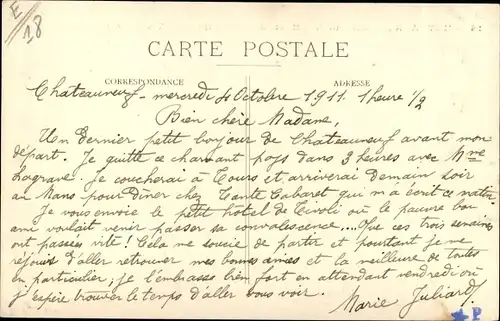 E/18
CARTE POSTALE
CORRESPONDANCE
ADRESSE
Chateauneuf - mercredi 4 Octobre 1911. 1 heure 1/2
Bien chère Madame,
Un dernier petit bonjour de Chateauneuf avant mon
départ. Je quitte ce charmant pays dans 3 heures avec Mme
Lagrave. je coucherai à Tours et arriverai Demain soir
au Mans pour dîner chez Tante Cabaret qui m'a écrit ce matin.
Je vous envoie le petit hôtel de Tivoli où le pauvre
ami voulait venir passer sa convalescence,... Que ces trois semaines
ont passées vite! Cela me soucie de partir et pourtant je me
réjouis d'aller retrouver mes bonnes amies et la meilleure de toutes
en particulier; je l'embrasse bien fort en attendant vendredi où
j'espère trouver le temps d'aller vous voir.
Marie Juliard
P